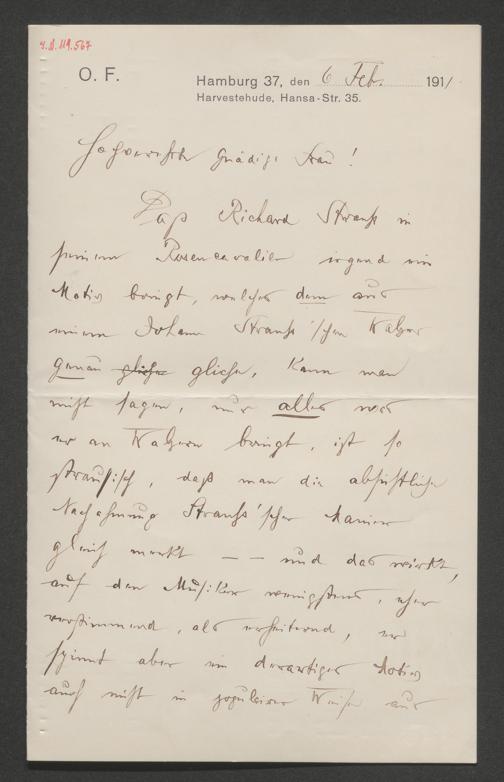 I.N. 119.567
O. F.
Hamburg 37, den 6 Feb. 1911
Harvestehude, Hansa-Str. 35.
Hochverehrte Gnädige Frau!
Daß Richard Strauß in
seinem Rosencavalier irgend ein
Motiv bringt, welches dem aus
einem Johann Strauß'schen Walzer
genau gliche gliche, kann man
nicht sagen, nur alles was
er an Walzern bringt, ist so
straußisch, daß man die absichtliche
Nachahmung Strauß'scher Manier
gleich merkt — — und das wirkt,
auf den Musiker wenigstens, eher
verstimmend, als erheiternd, er
spinnt aber ein derartiges Motiv
auch nicht in populärer Weise aus